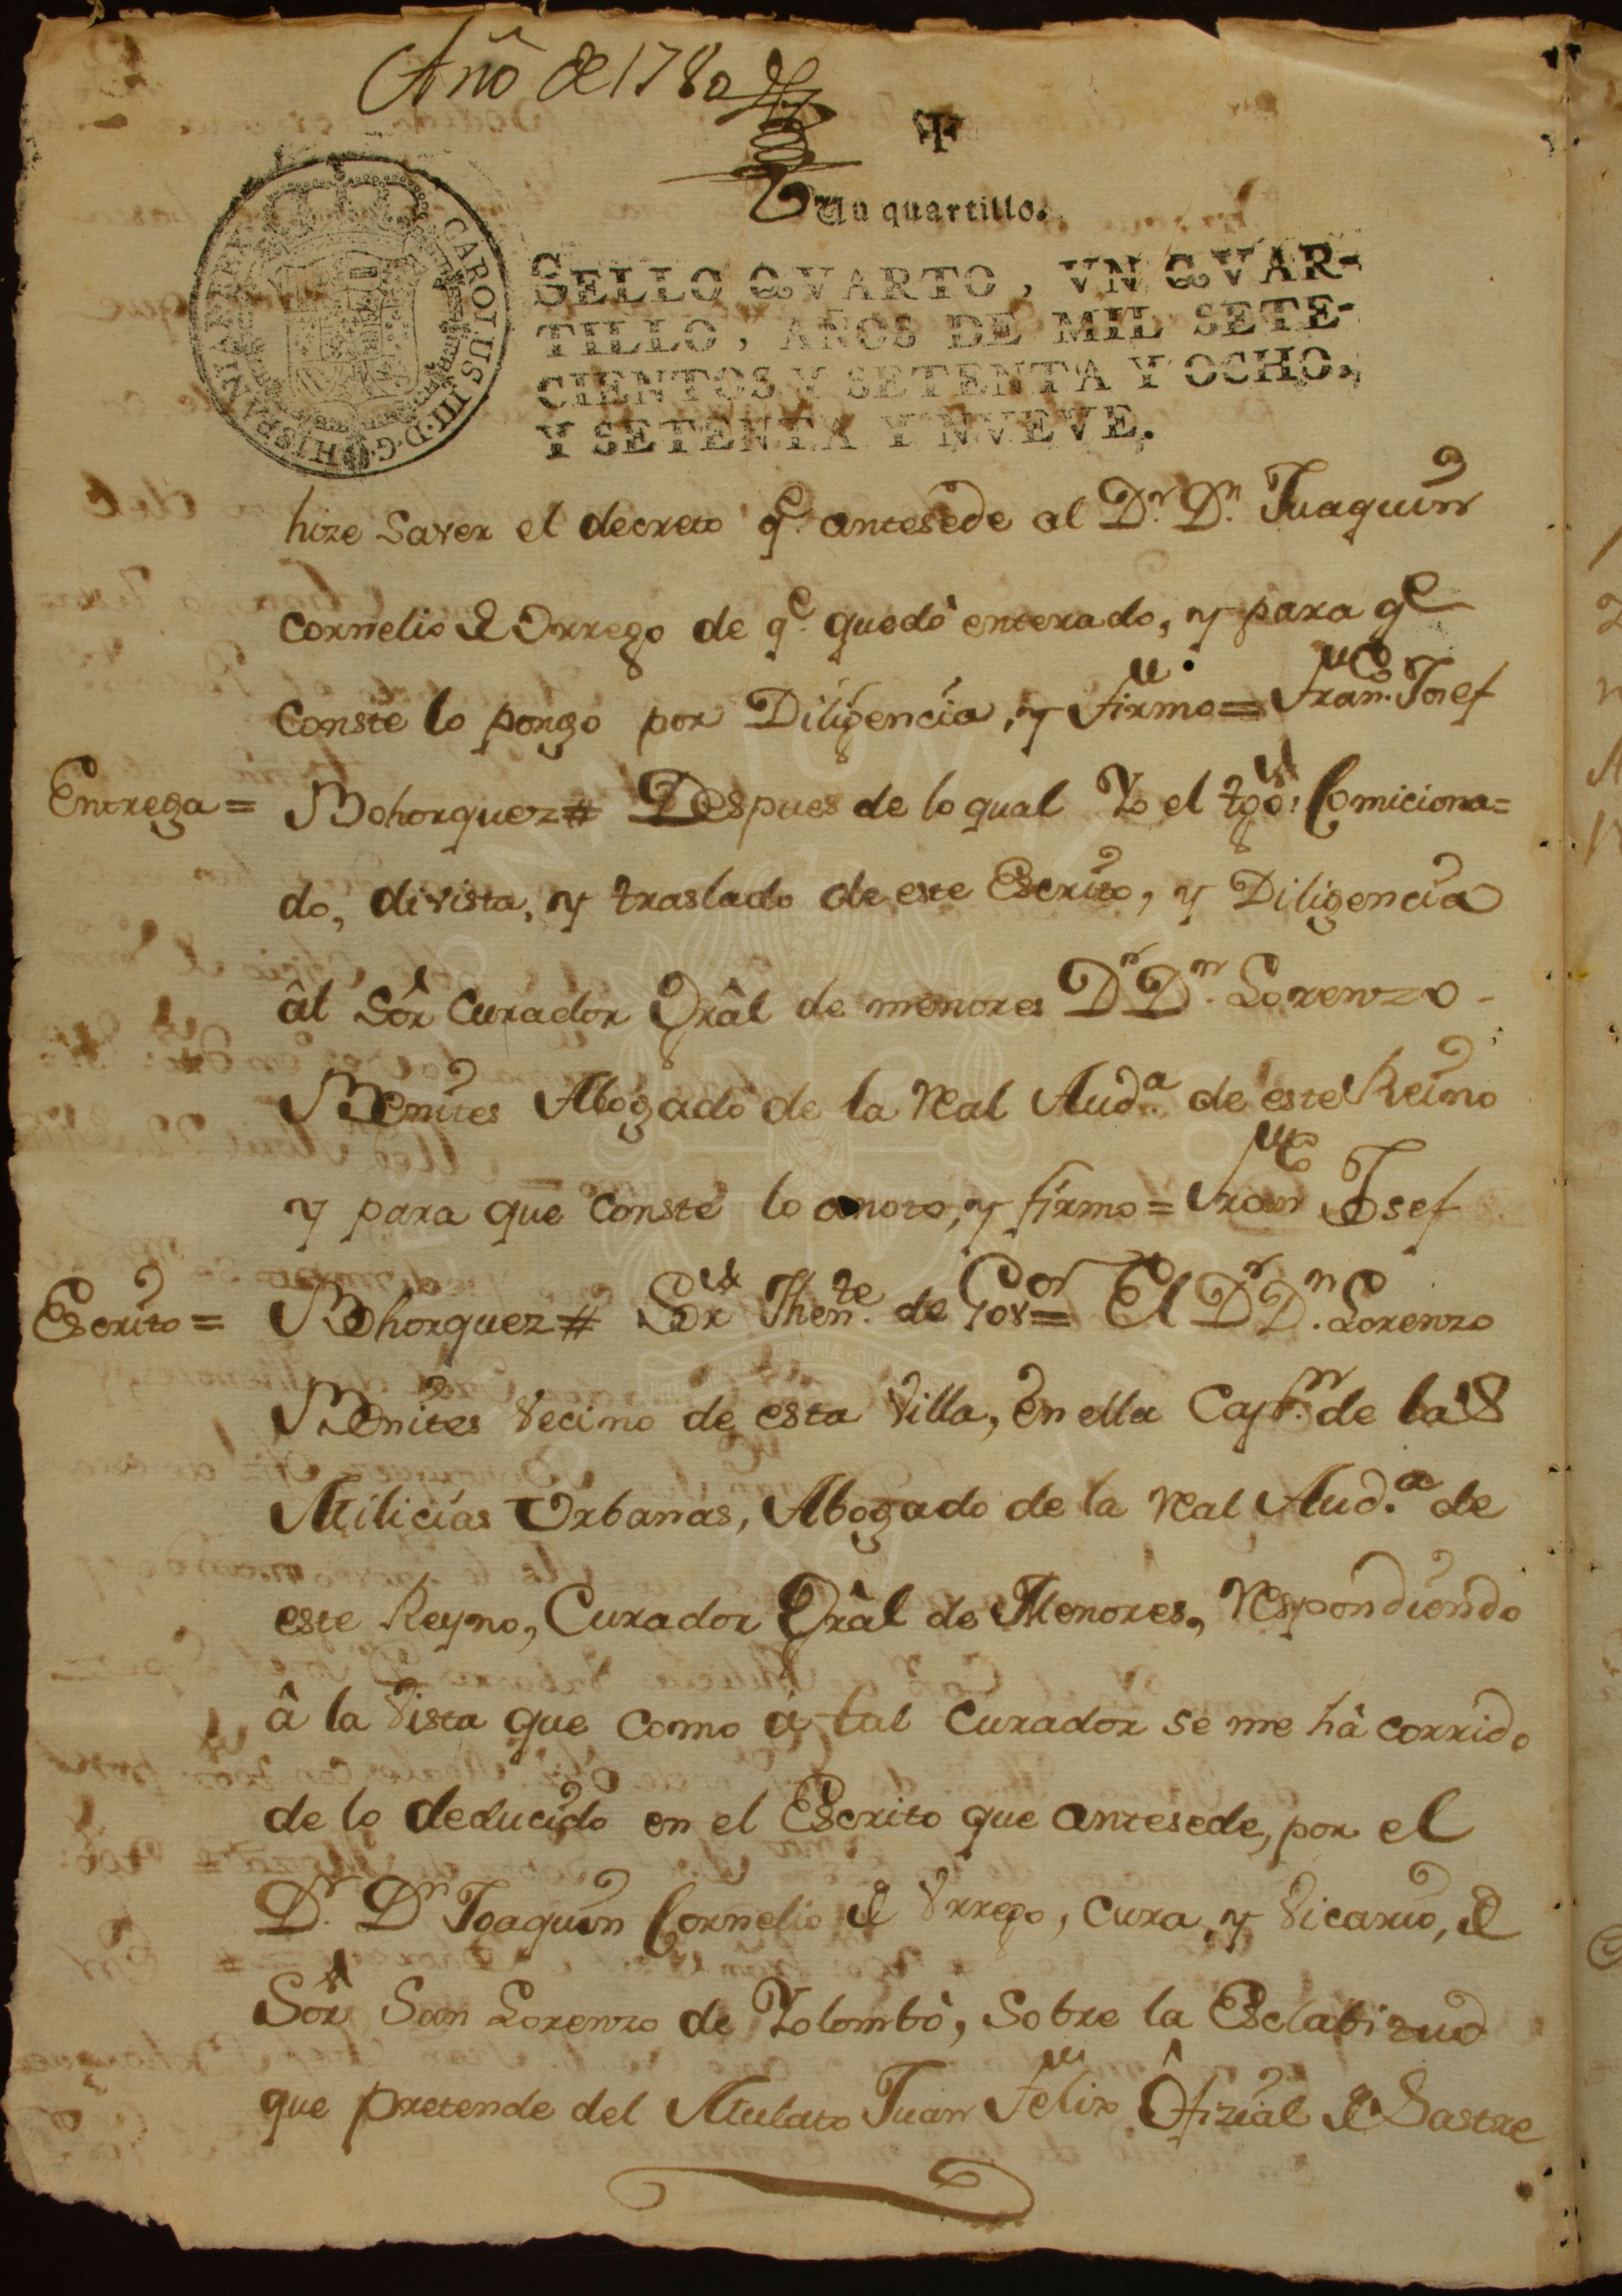 Año de 1780
Un quartillo.
CAROLUS III D G HISPANIAR REX
SELLO QVARTO, VN QVAR-
TILLO, AÑOS DE MIL SETE-
CIENTOS Y SETENTA Y OCHO,
Y SETENTA Y NVEVE.
hize saver el decreto qe. antesede al Dr. Dn. Juaquin
Cornelio de Orrego de qe. quedò enterado, y para qe
Conste lo pongo por Diligencia, y firmo= Franco. Josef
Entrega= Bohorquez# Despues de lo qual Yo el tgo: Comiciona=
do, di vista, y traslado de este Escrito, y Diligencia
âl Sôr Curador Grâl de menores Dr Dn. Lorenzo -
Benites Abogado de la Real Auda. de este Reino
y para que Conste lo anoto, y firmo= Franco Josef
Escrito= Bohorquez# Sor Thente. de Govor= El Dr Dn. Lorenzo
Benites Vecino de esta Villa, en ella Capn. de las
Milicias Urbanas, Abogado de la Real Aud.a de
este Reyno, Curador Grâl de Menores, Respondiendo
â la Vista que Como á tal Curador se me hâ corrido
de lo deducido en el Escrito que antesede, por el
Dr. Dn Joaquin Cornelio de Vrrego, Cura, y Vicario, de
Sôr San Lorenzo de Yolombò, Sobre la Esclabitud
que pretende del Mulato Juan Felix Ôfizial de Sastre